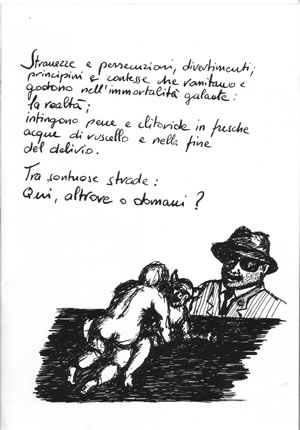 Stranezze e persecuzioni, divertimenti;
principini e contesse che vomitano e
godono nell'immortalità galante:
la realtà;
intingono pene e clitoride in fresche
acque di ruscello e nella fine
del delirio.
Tra sontuose strade:
Qui, altrove o domani?